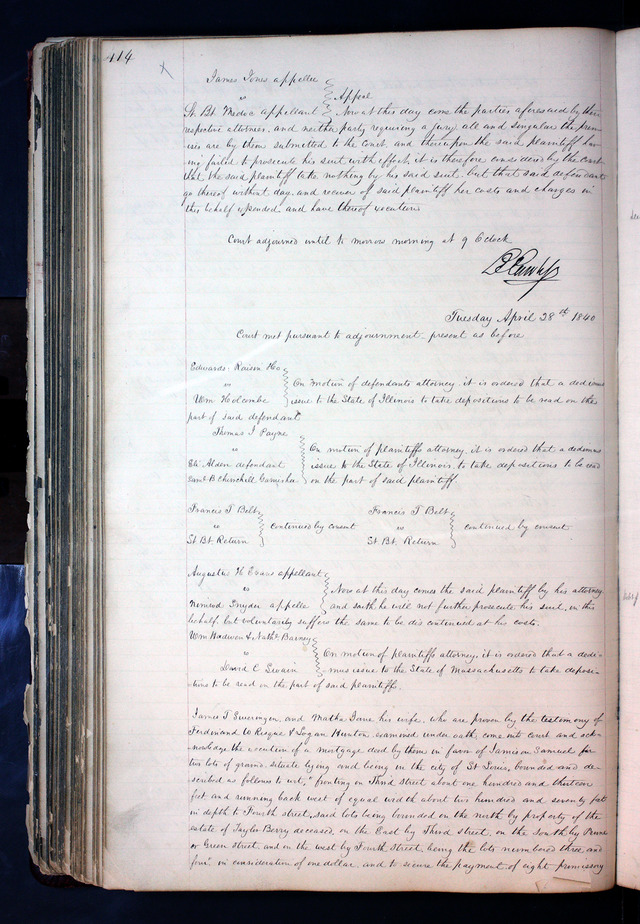 414
James Jones appellee
vs
St. Bt. Medoc appellant
Appeal
Now at this day come the parties aforesaid by their
respective attornies, and neither party requiring a jury all and singular the prem-
ises are by them submitted to the Court, and thereupon the said plaintiff hav-
ing failed to prosecute his suit with effect, it is therefore considered by the court
that the said plaintiff take nothing by his said suit, but that said defendant
go thereof without day, and recover of said plaintiff her costs and charges in
this behalf expended, and have thereof execution
Court adjourned until to morrow morning at 9 O clock
Tuesday April 28th 1840
Court met pursuant to adjournment, present as before
Edwards Raisin &Co
vs
Wm Holcombe
On motion of defendants attorney, it is ordered that a dedimus
issue to the State of Illinois to take depositions to be read on the
part of said defendant
Thomas J Payne
vs
Eli Alden defendant
Saml B Churchill Garnishee
On motion of plaintiffs attorney, it is ordered that a dedimus
issue to the State of Illinois, to take depositions to be read
on the part of said plaintiff
Francis T Belt
vs
St Bt. Return
continued by consent
Francis T Belt
vs
St. Bt. Return
continued by consent
Augustus H Evans appellant
vs
Nimrod Snyder appellee
Now at this day comes the said plaintiff by his attorney
and saith he will not further prosecute his suit, in this
behalf, but voluntarily suffers the same to be discontinued at his costs.
Wm Hadwen & Nathl Barney
vs
David C Swain
On motion of plaintiffs attorney, it is ordered that a dedi-
mus issue to the State of Massachusetts to take deposi-
tions to be read on the part of said plaintiffs.
James T Sweringen, and Martha Jane his wife, who are proven by the testimony of
Ferdinand W Risque & Logan Hunton, examined under oath, come into court and ack-
nowledge the execution of a mortgage deed by them in favor of Jamison Samuel for
two lots of ground, situate lying and being in the city of St Louis, bounded and de-
scribed as follows to wit, "fronting on Third street about one hundred and thirteen
feet and running back west of equal width about two hundred and seventy feet
in depth to Fourth street, said lots being bounded on the north by property of the
estate of Taylor Berry deceased, on the East by Third street, on the South by Prune
or Green street, and on the west by Fourth street, being the lots numbered three and
four, in consideration of one dollar, and to secure the payment of eight promissory